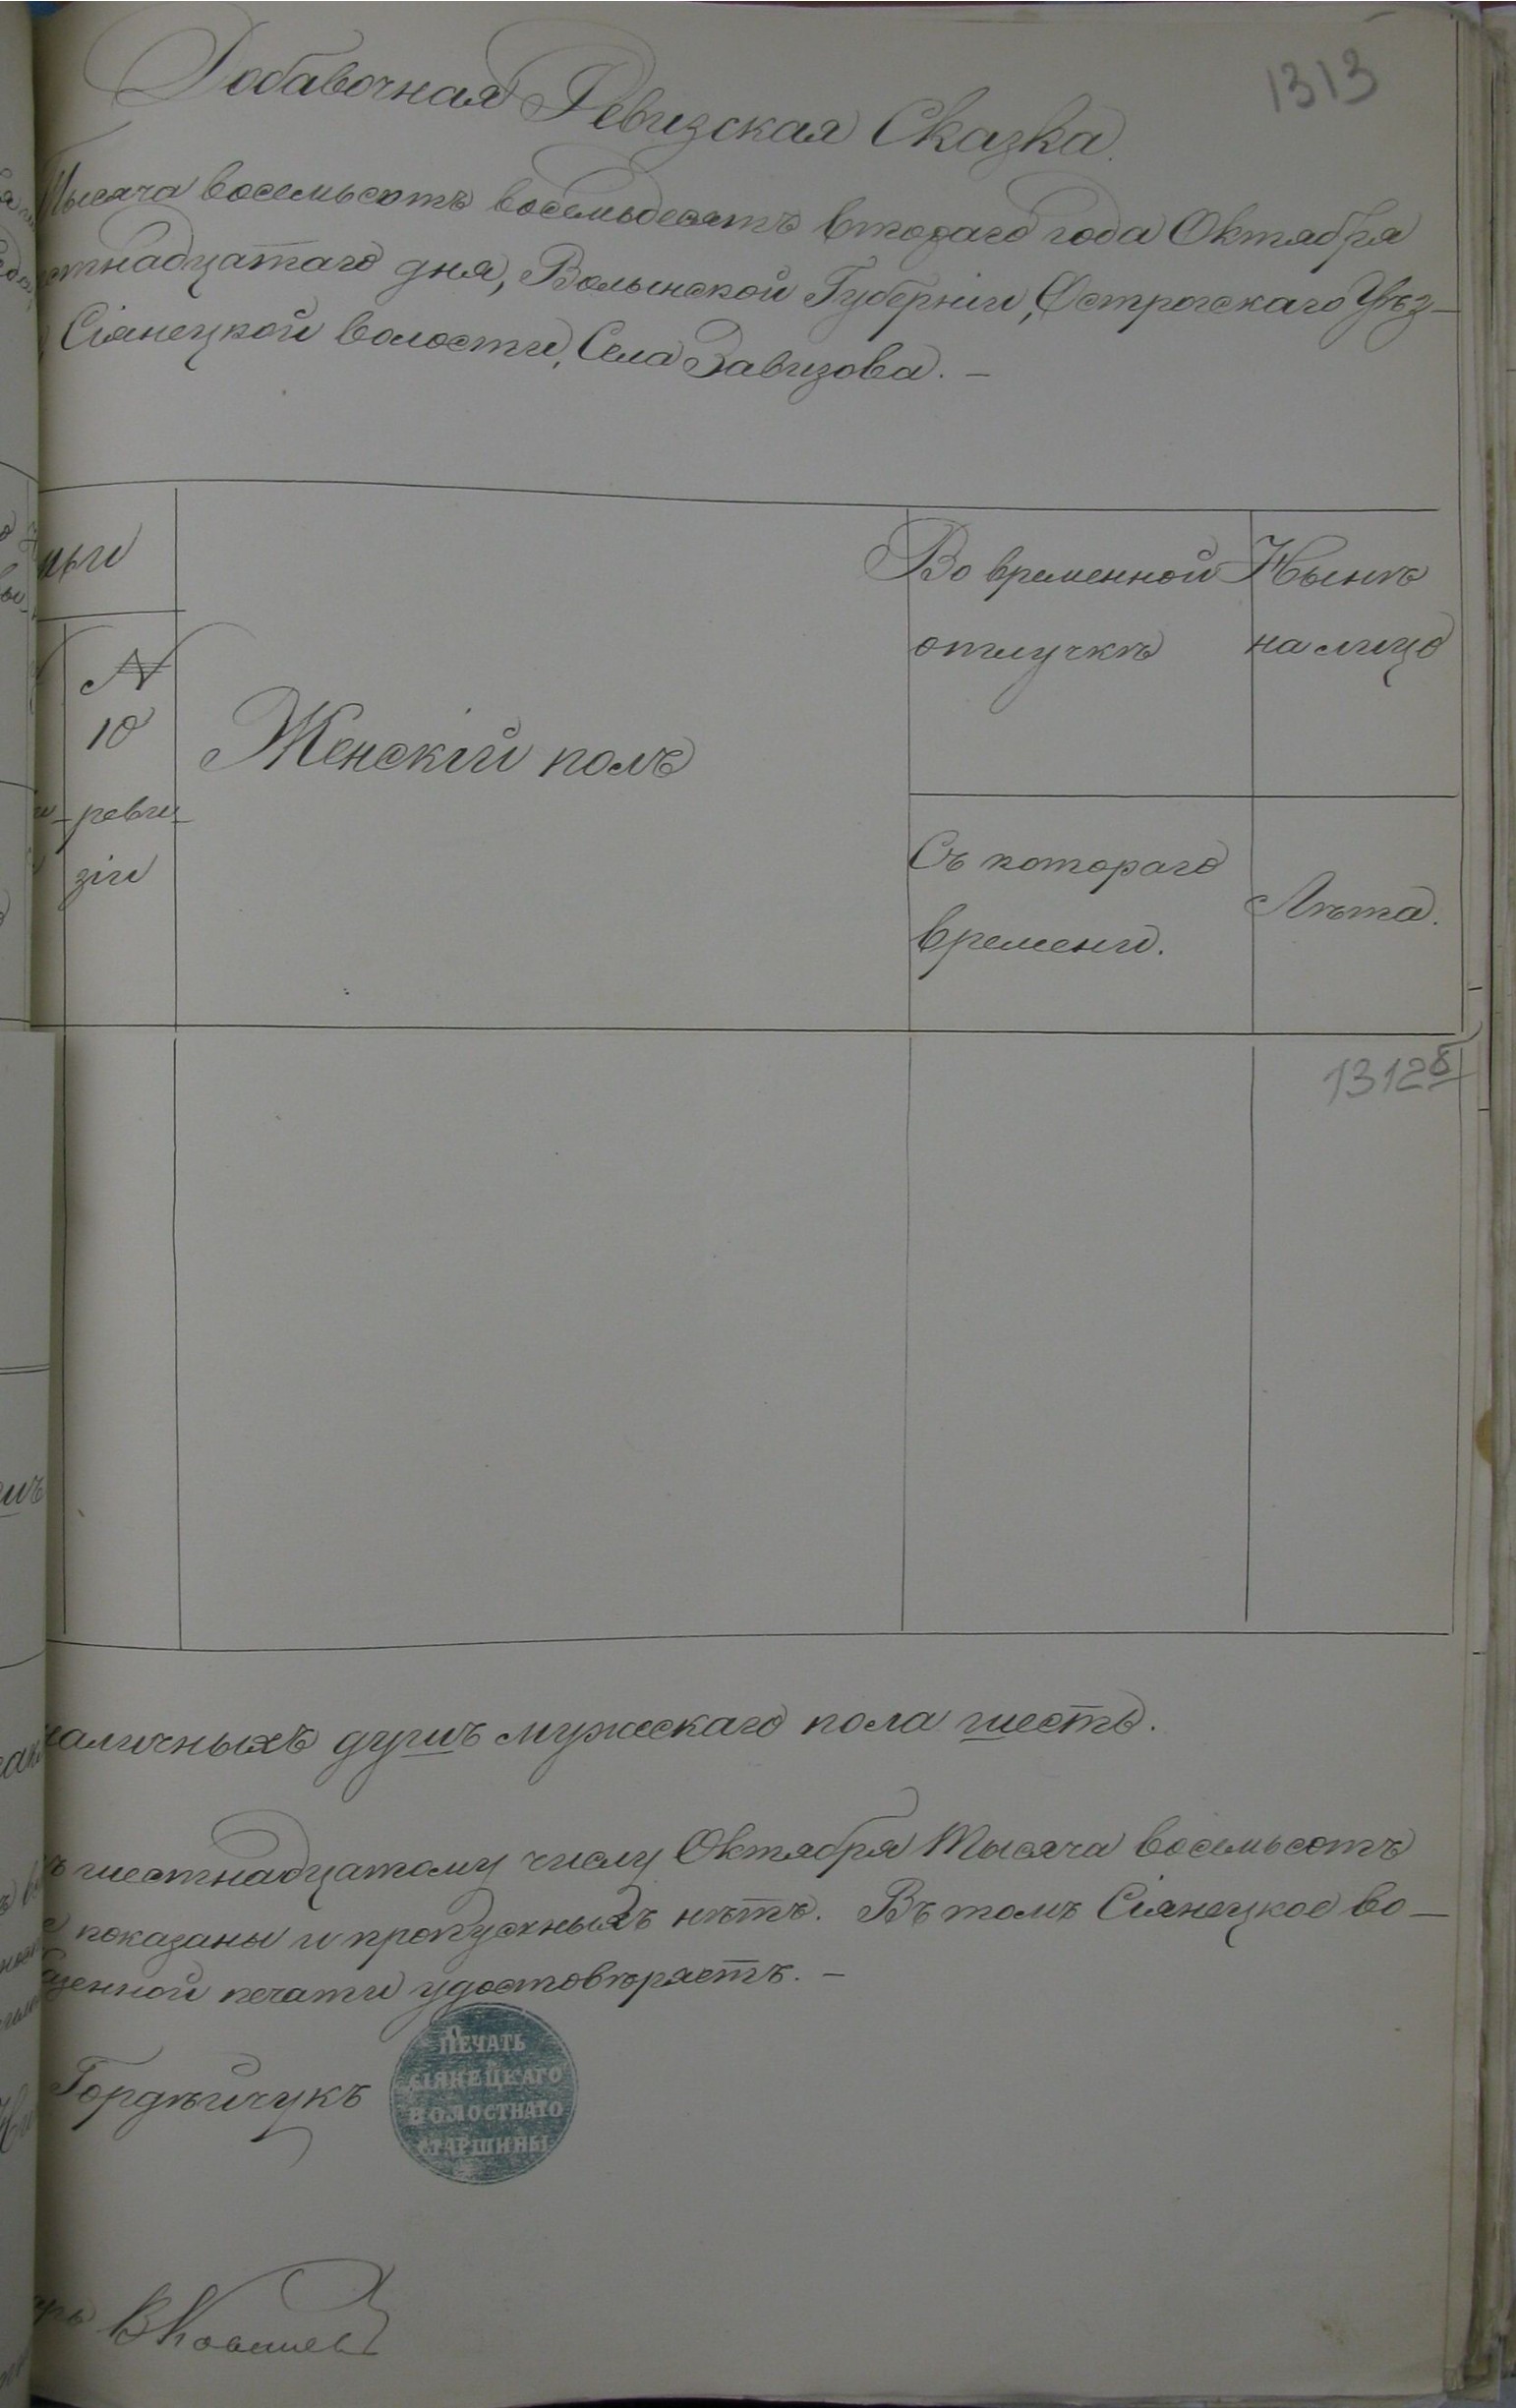 1313
Добавочная Ревизская Сказка.
Тысяча восемьсотъ восемьдесятъ втораго года Октября
стнадцатаго дня, Волынской Губерніи, Острогскаго Уѣз-
Сіянецкой волости, Села Завизова. -
ьи
N
10
реви
зіи
Женскій полъ
Во временной
отлучкѣ
Нынѣ
на лицо
Съ котораго
времени.
Лѣта.
1312б
наличныхъ душъ мужескаго пола шесть.
ъ шестнадцатому числу Октября Тысяча восемьсотъ
показаны и пропускныхъ нѣтъ. Въ томъ Сіянецкое во-
щенной печати удостовѣряетъ. -
Гордѣйчукъ
ПЕЧАТЬ
СІЯНЕЦКАГО
ВОЛОСТНАГО
СТАРШИНЫ